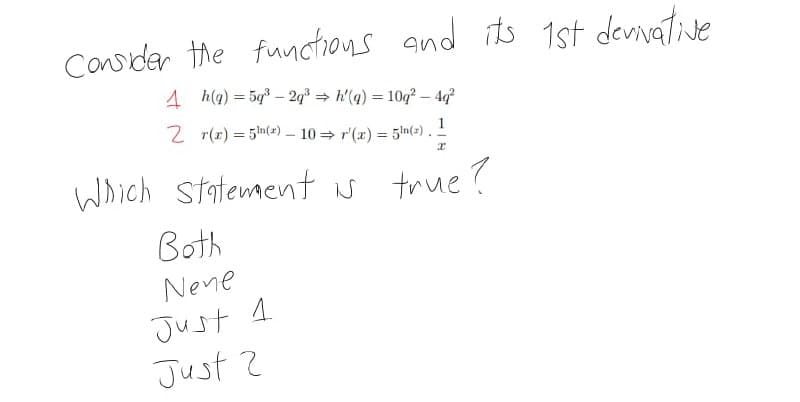 Consider the functions and its 1st derivative
1 h(q) = 5q³ – 2q³ ⇒ h'(q) = 10q² – 4q²
2 r(x) = 5^ln(x) – 10 ⇒ r'(x) = 5^ln(x) · 1/x
Which statement is true?
Both
Nene
Just 1
Just 2